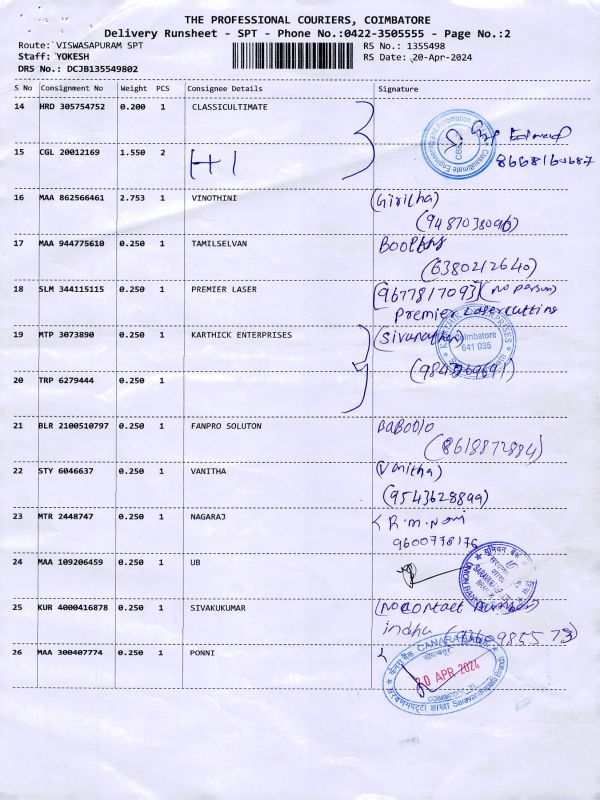 THE PROFESSIONAL COURIERS, COIMBATORE
Delivery Runsheet - SPT - Phone No.:0422-3505555 - Page No.:2
Route: VISWASAPURAM SPT RS No.: 1355498
Staff: YOKESH RS Date: 20-Apr-2024
DRS No.: DCJB135549802
S No Consignment No Weight PCS Consignee Details Signature
14 HRD 305754752 0.200 1 CLASSICULTIMATE
15 CGL 20012169 1.550 2 H1
16 MAA 862566461 2.753 1 VINOTHINI (Girilha)
17 MAA 944775610 0.250 1 TAMILSELVAN
(6380212640)
18 SLM 344115115 0.250 1 PREMIER LASER (9677817093) (no person)
Premier Lasercutting
19 MTP 3073890 0.250 1 KARTHICK ENTERPRISES
Coimbatore
641 035
20 TRP 6279444 0.250 1
21 BLR 2100510797 0.250 1 FANPRO SOLUTON
(8618872884)
22 STY 6046637 0.250 1 VANITHA (Vanitha)
(9543628899)
23 MTR 2448747 0.250 1 NAGARAJ
9600778176
24 MAA 109206459 0.250 1 UB
25 KUR 4000416878 0.250 1 SIVAKUKUMAR (No contact Number)
indhu
26 MAA 300407774 0.250 1 PONNI
CANARA BANK
20 APR 2024